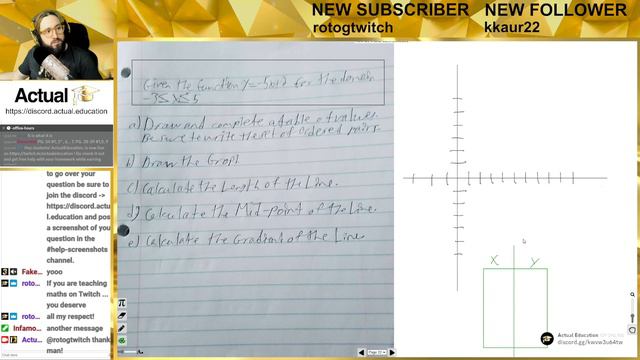 NEW SUBSCRIBER
rotogtwitch
NEW FOLLOWER
kkaur22
Actual
https://discord.actual.education
Given the function y=-5x+2 for the domain
-3≤x≤5
a) Draw and complete a table of values
Be sure to write the set of ordered pairs.
b) Draw the Graph
c) Calculate the Length of the Line.
d) Calculate the Mid-point of the Line.
e) Calculate the Gradient of the Line
to go over your
question be sure to
join the discord ->
https://discord.actu
l.education and pos
a screenshot of you
question in the
#help-screenshots
channel.
Fake... yooo
roto... If you are teaching
maths on Twitch ...
you deserve
roto... all my respect!
Infamo... another message
Actu... @rotogtwitch thank
man!
X Y
Actual Education
discord.gg/kwvw3u64tw